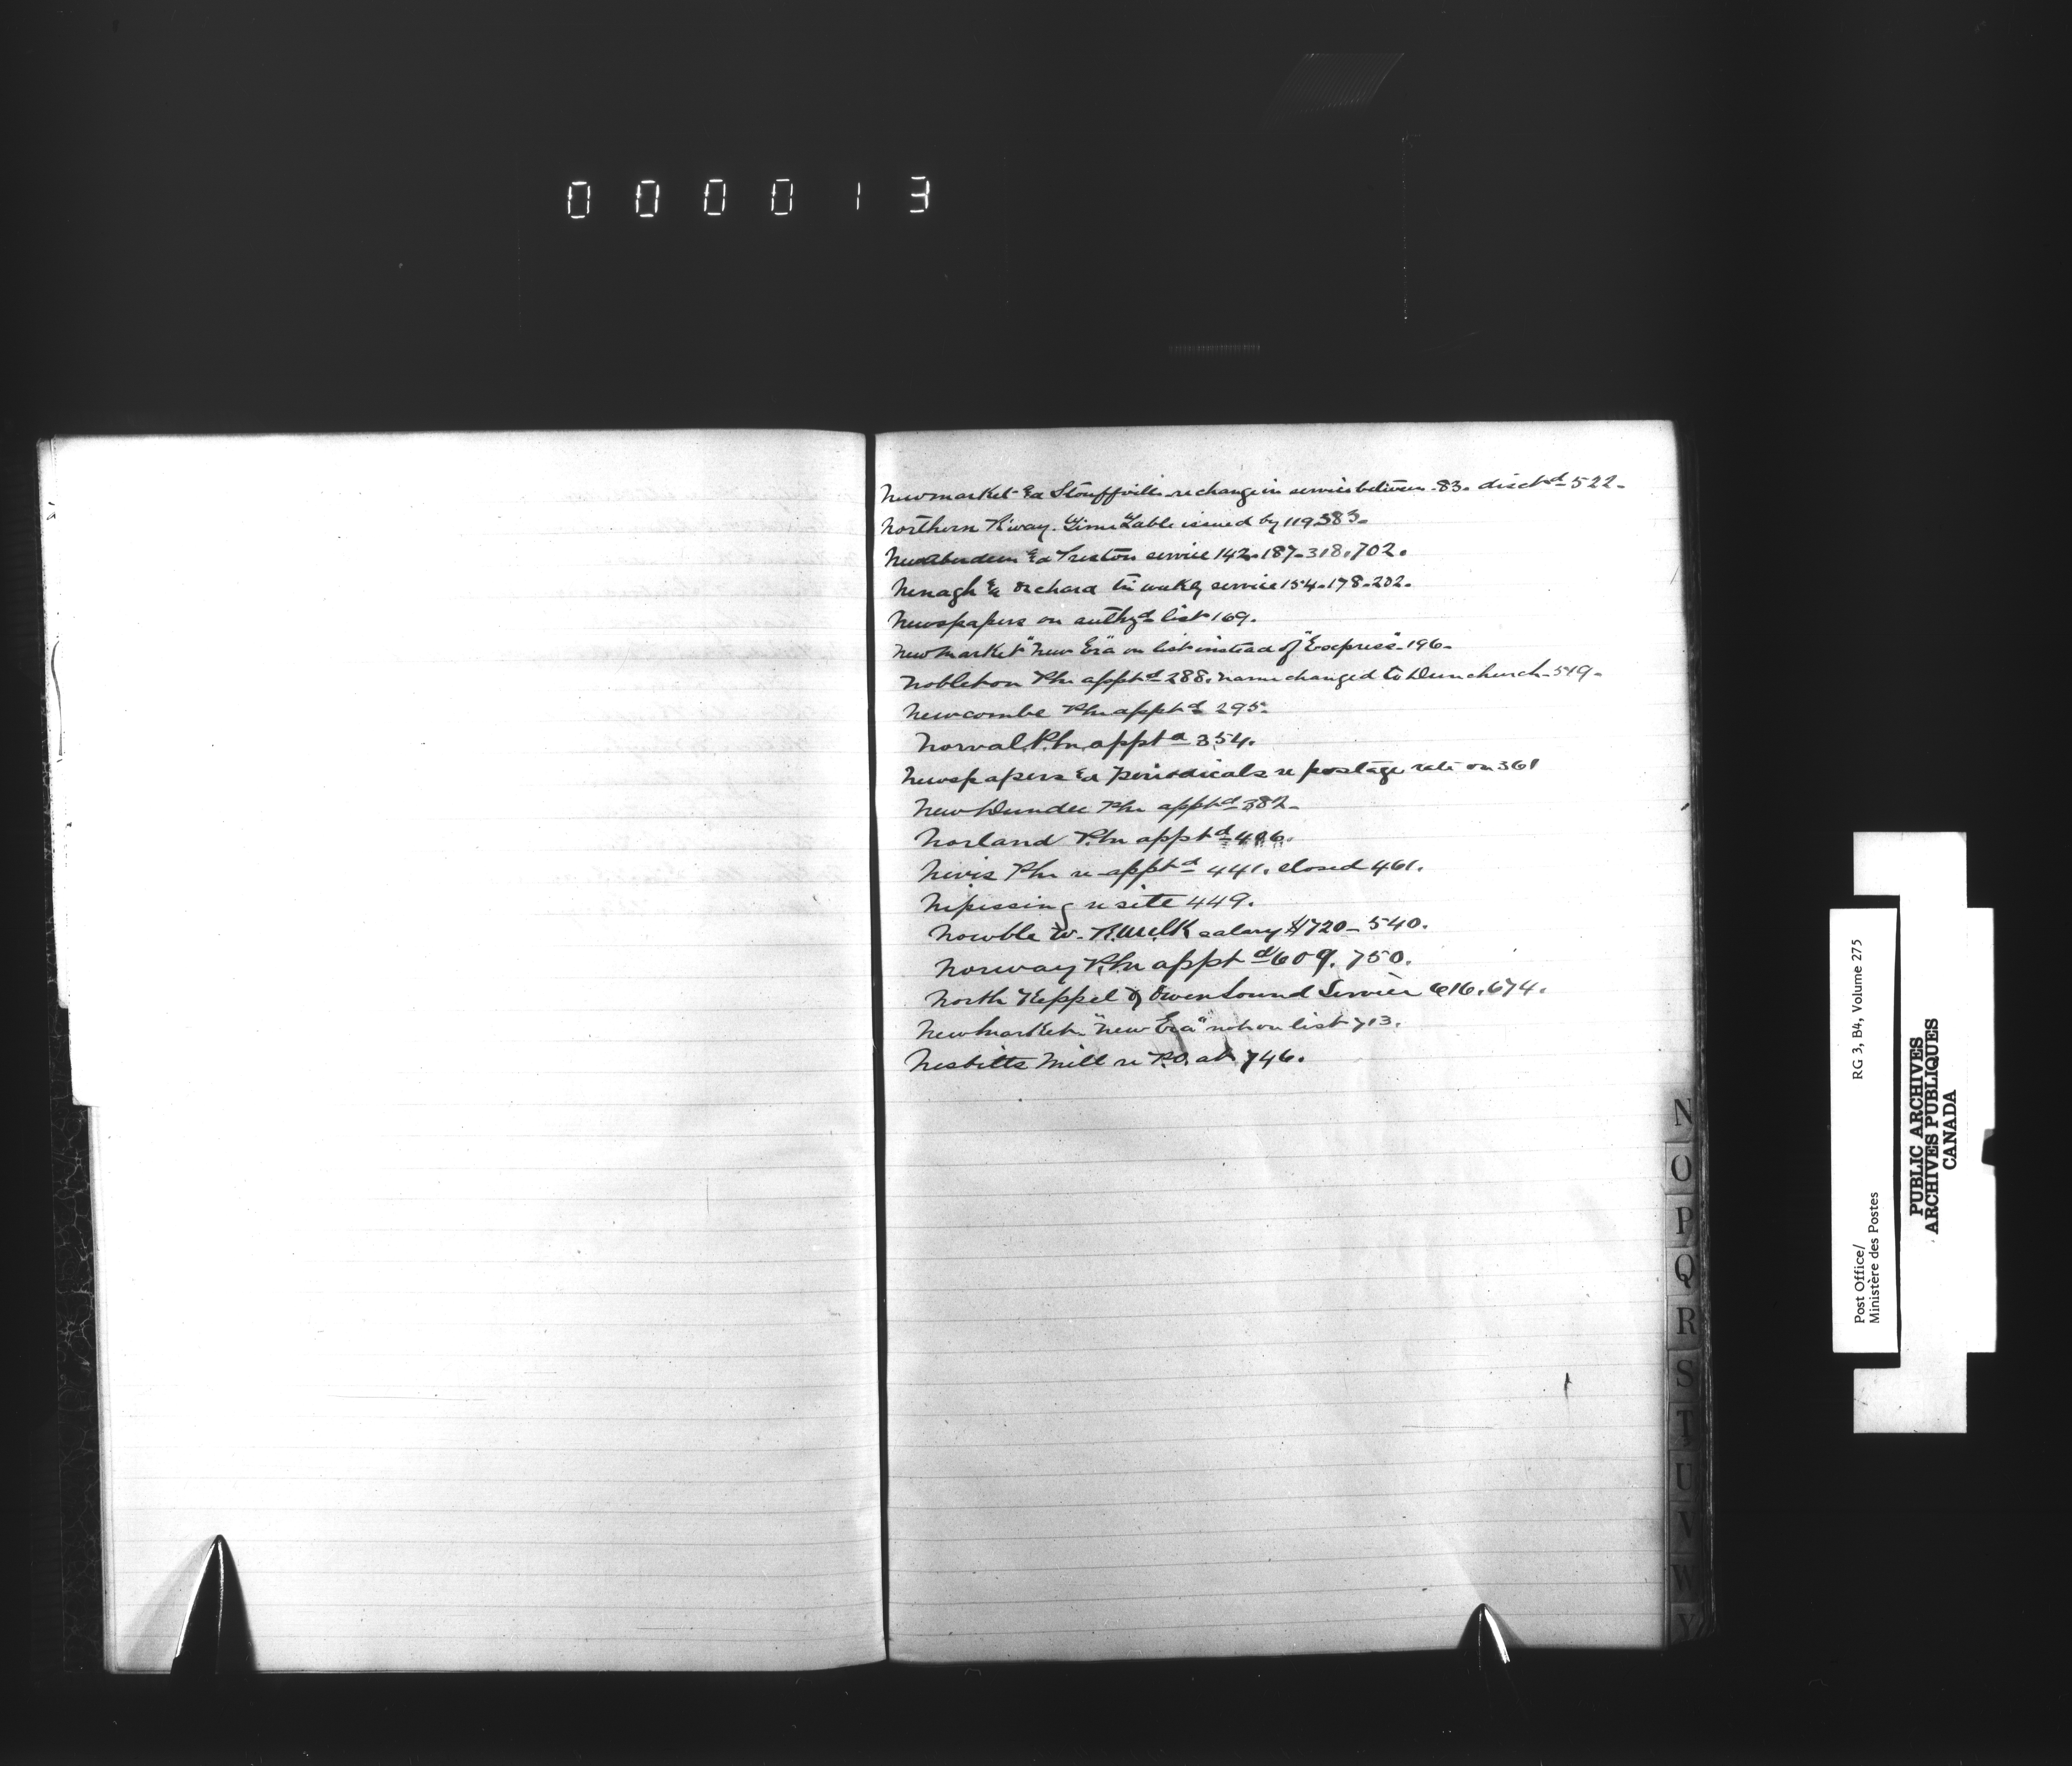 000013
Newmarket & Stouffville re change in service between 83. disctd 522.
Northern R'way. Time Table issued by 119.383.
New Aberdeen & Preston service 142.187.318.702.
Nenagh & Orchard tri weekly service 154.178.202.
Newspapers on authzd list 169.
Newmarket "New Era" on list instead of "Express" 196.
Nobleton Pm apptd 288. name changed to Dunchurch 549.
Newcombe Pm apptd 295.
Norval P.m. apptd 354.
Newspapers & Periodicals re postage rate on 361
New Dundee Pm apptd 382.
Norland P.m apptd 406.
Nivis Pm re-apptd 441. closed 461.
Nipissing re site 449.
W. R. M. Clk salary $720 - 540.
Norway P.m apptd 609. 750.
North Keppel & Owen Sound Service 616. 674.
Newmarket "New Era" not on list 713.
Nesbitts Mill re P.O. at 746.
N
O
P
Q
R
S
T
U
V
W
Y
Post Office/
Ministère des Postes
RG 3, B4, Volume 275
PUBLIC ARCHIVES
ARCHIVES PUBLIQUES
CANADA